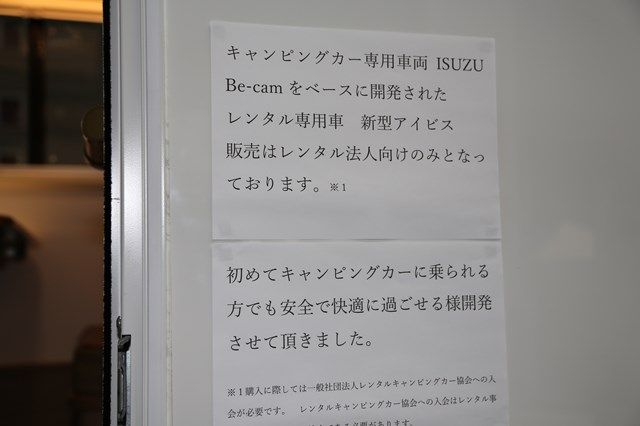 キャンピングカー専用車両 ISUZU
Be-cam をベースに開発された
レンタル専用車　新型アイビス
販売はレンタル法人向けのみとなっ
ております。※1
初めてキャンピングカーに乗られる
方でも安全で快適に過ごせる様開発
させて頂きました。
※1購入に際しては一般社団法人レンタルキャンピングカー協会への入
会が必要です。　レンタルキャンピングカー協会への入会はレンタル事
必要があります。